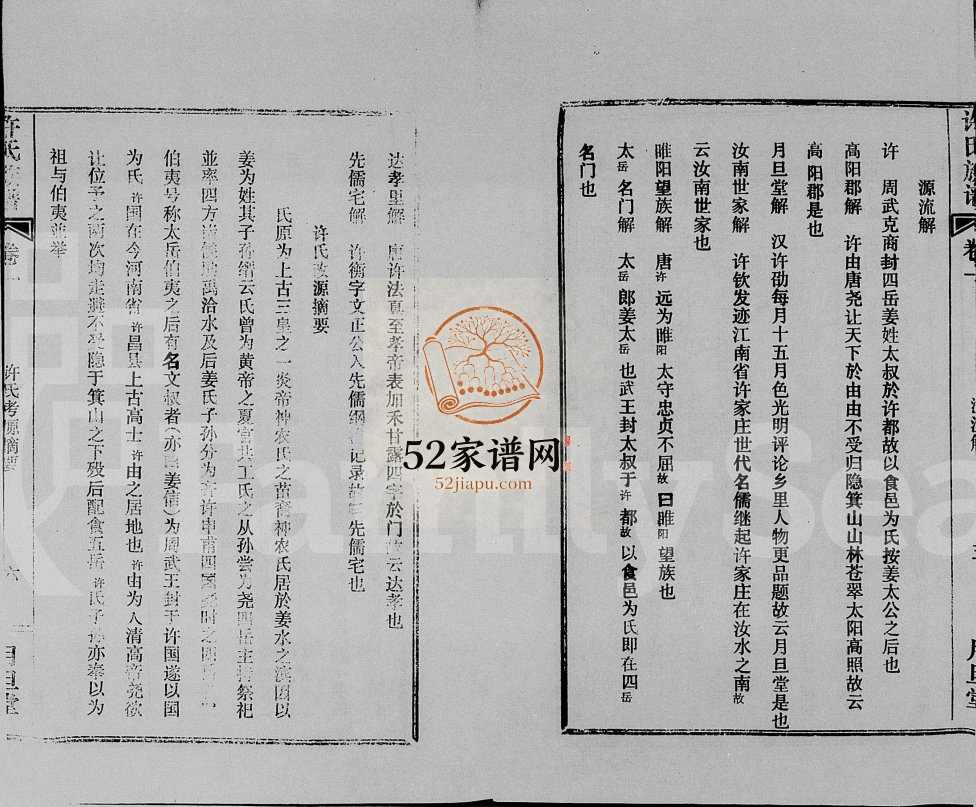 源流解
许 周武克商封四岳姜姓太叔於许都故以食邑为氏按姜太公之后也
高阳郡解 许由唐尧让天下於由由不受归隐箕山山林苍翠太阳高照故云
高阳郡是也
月旦堂解 汉许劭每月十五月色光明评论乡里人物更品题故云月旦堂是也
汝南世家解 许钦发迹江南省许家庄世代名儒继起许家庄在汝水之南故
云汝南世家也
睢阳望族解 唐许远为睢阳太守忠贞不屈故曰睢阳望族也
太岳名门解 太岳郎姜太岳也武王封太叔于许都故以食邑为氏即在四岳
名门也
达孝里解 唐许法真至孝帝表加禾甘露四字於门 云达孝也
先儒宅解 许衡字文正公入先儒纲 记录故 先儒宅也
许氏考源摘要
氏原为上古三皇之一炎帝神农氏之苗裔神农氏居於姜水之滨因以
姜为姓其子孙缙云氏曾为黄帝之夏官共工氏之从孙尝为尧四岳主 祭祀
並率四方诸侯 禹治水及后姜氏子孙分为齐许申甫四国 时之四
伯夷号称太岳伯夷之后有名文叔者(亦 姜 )为周武王封于许国遂以国
为氏 许国在今河南省许昌县上古高士许由之居地也许由为人清高帝尧欲
让位予之两次均走避不受隐于箕山之下殁后配食五岳许氏子孙亦奉以为
祖与伯夷並举
许氏族谱
卷一
许氏考源摘要
六
月旦堂
52家谱网
52jiapu.com